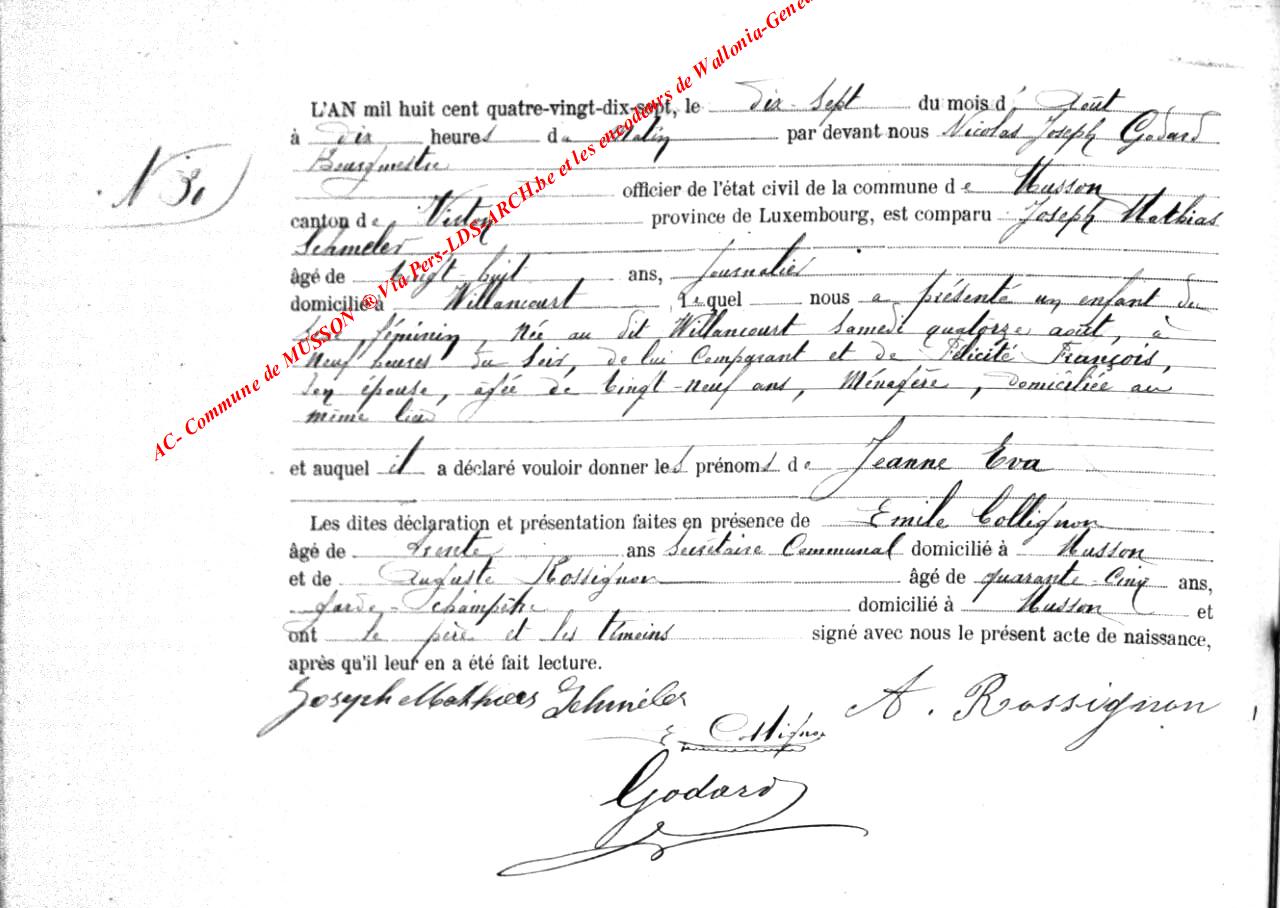 AC- Commune de MUSSON ® Via Pers-LDS-ARCH.be et les encodeurs de Wallonia-Genea
L'AN mil huit cent quatre-vingt-dix-sept, le dix-sept du mois d' Août
à dix heures du Matin par devant nous Nicolas Joseph Godard
Bourgmestre
N 30
officier de l'état civil de la commune de Musson
canton de Virton province de Luxembourg, est comparu Joseph Mathias
Schmeler
âgé de vingt-huit ans, Journalier
domicilié à Willancourt, Lequel nous a présenté un enfant du
sexe féminin, Née au dit Willancourt samedi quatorze août, à
Neuf heures du Soir, de lui Comparant et de Félicité François,
son épouse, âgée de vingt-neuf ans, Ménagère, domiciliée au
même lieu
et auquel il a déclaré vouloir donner les prénoms de Jeanne Eva
Les dites déclaration et présentation faites en présence de Emile Collignon
âgé de trente ans Secrétaire Communal domicilié à Musson
et de Auguste Rossignon âgé de quarante-cinq ans,
garde-champêtre domicilié à Musson et
ont le père et les témoins signé avec nous le présent acte de naissance,
après qu'il leur en a été fait lecture.
Joseph Mathias Schméler A. Rossignon
E Collignon
Godard